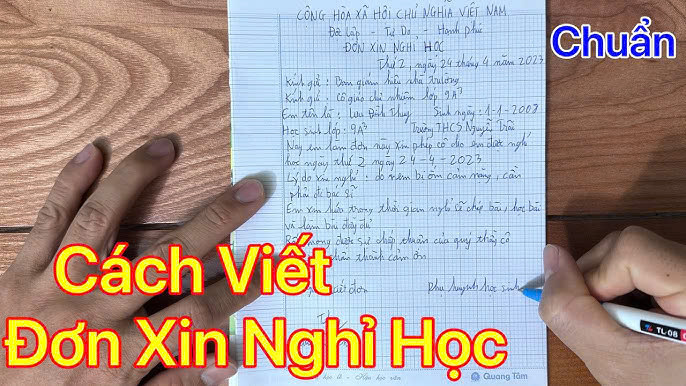 CỘNG HÒA XÃ HỘI CHỦ NGHĨA VIỆT NAM
Độc lập - Tự Do - Hạnh phúc
ĐƠN XIN NGHỈ HỌC
Thứ 2, ngày 24 tháng 4 năm 2023
Chuẩn
Kính gửi : Ban giám hiệu nhà trường
Kính gửi : Cô giáo chủ nhiệm lớp 9A3
Em tên là : Lưu Đình Thuy Sinh ngày : 1-1-2008
Học sinh lớp : 9A3 Trường THCS Nguyễn Trãi
Nay em làm đơn này xin phép cô cho em được nghỉ
học ngày thứ 2 ngày 24-4-2023
Lý do xin nghỉ : do em bị ốm cảm nặng, cần
phải đi bác sĩ
Em xin hứa trong thời gian nghỉ sẽ chép bài, học bài
và làm bài đầy đủ
mong được sự chấp thuận của quý thầy cô
chân thành cảm ơn
viết đơn phụ huynh học sinh
Cách Viết
Đơn Xin Nghỉ Học
TL-08
Quang Tâm